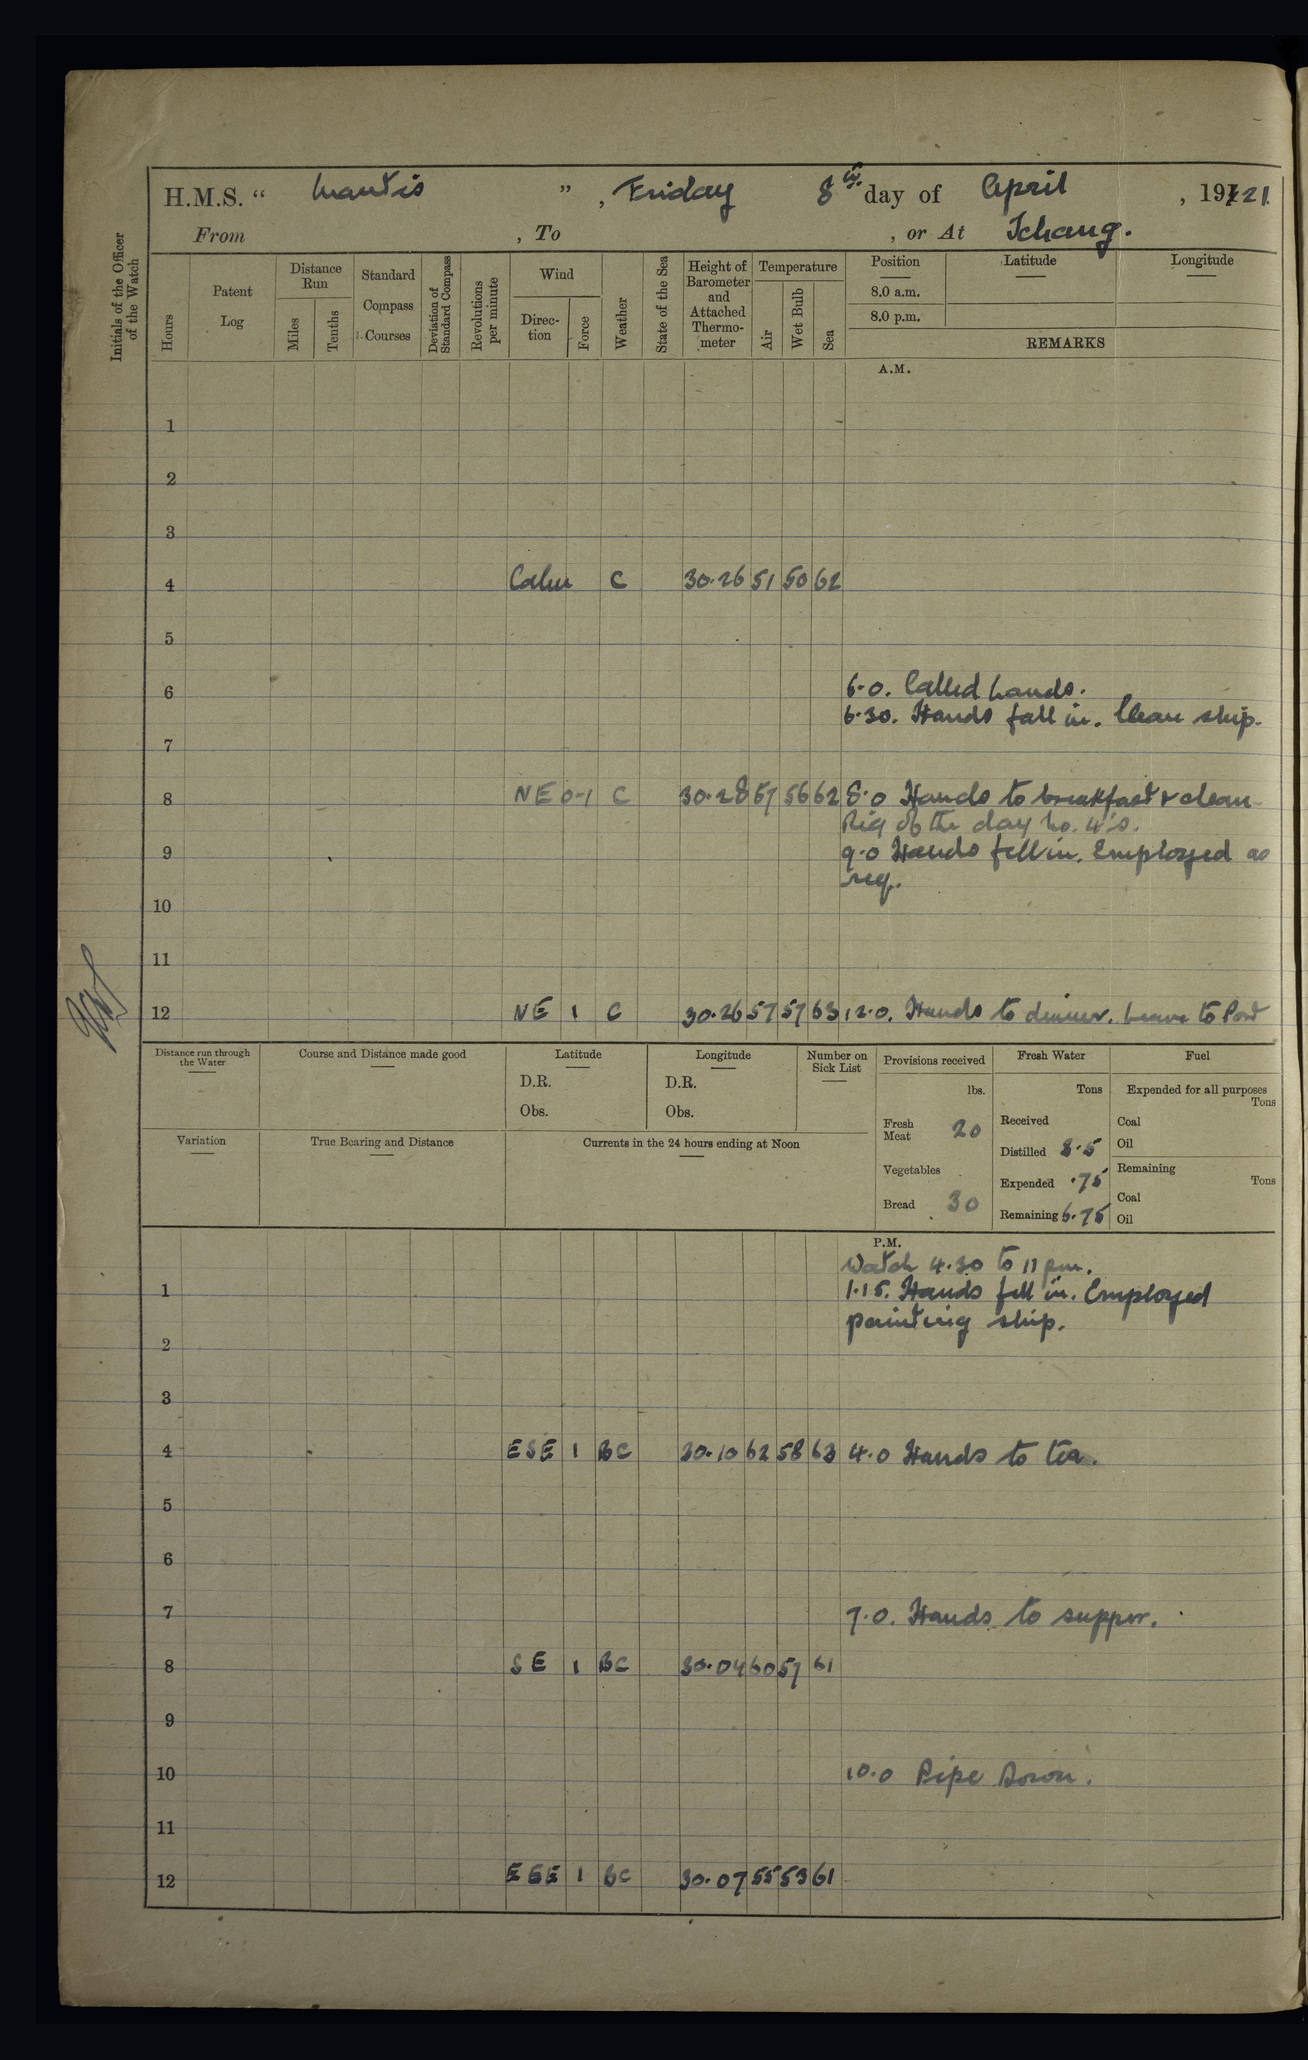 H.M.S. “ Mantis ” , Friday 8th day of April , 1921.
From , To , or At Ichang.
Initials of the Officer of the Watch
Hours
Patent Log
Distance Run
Miles
Tenths
Standard Compass Courses
Deviation of Standard Compass
Revolutions per minute
Wind
Direction
Force
Weather
State of the Sea
Height of Barometer and Attached Thermometer
Temperature
Air
Wet Bulb
Sea
Position Latitude Longitude
8.0 a.m.
8.0 p.m.
REMARKS
A.M.
1
2
3
4 Calm C 30.26 51 50 62
5
6 6.0. Called hands.
6.30. Hands fall in. Clean ship.
7
8 NE 0-1 C 30.28 57 56 62 8.0 Hands to breakfast & clean.
Rig of the day No. 4's.
9 9.0 Hands fell in. Employed as
req.
10
11
12 NE 1 C 30.26 57 57 63 12.0. Hands to dinner. Leave to Port
Distance run through the Water
Course and Distance made good
Latitude
D.R.
Obs.
Longitude
D.R.
Obs.
Number on Sick List
Provisions received
lbs.
Fresh Meat 20
Vegetables
Bread 30
Fresh Water
Tons
Received
Distilled 3.5
Expended .75
Remaining 6.75
Fuel
Expended for all purposes
Tons
Coal
Oil
Remaining
Tons
Coal
Oil
Variation
True Bearing and Distance
Currents in the 24 hours ending at Noon
P.M.
Watch 4.30 to 11 pm.
1 1.15. Hands fell in. Employed
painting ship.
2
3
4 ESE 1 BC 30.10 62 58 63 4.0 Hands to tea.
5
6
7 7.0. Hands to supper.
8 SE 1 BC 30.04 60 57 61
9
10 10.0 Pipe Down.
11
12 ESE 1 BC 30.07 55 53 61